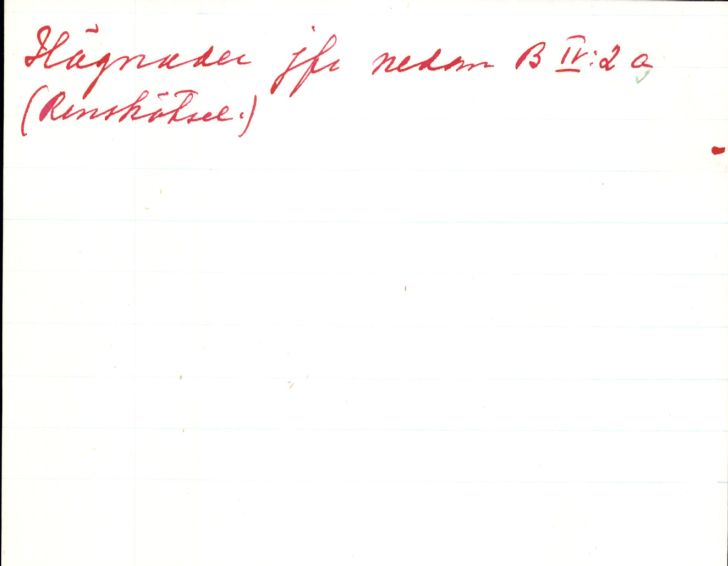 Hägnader jfr nedan B IV:2 a
(Renskötsel.)